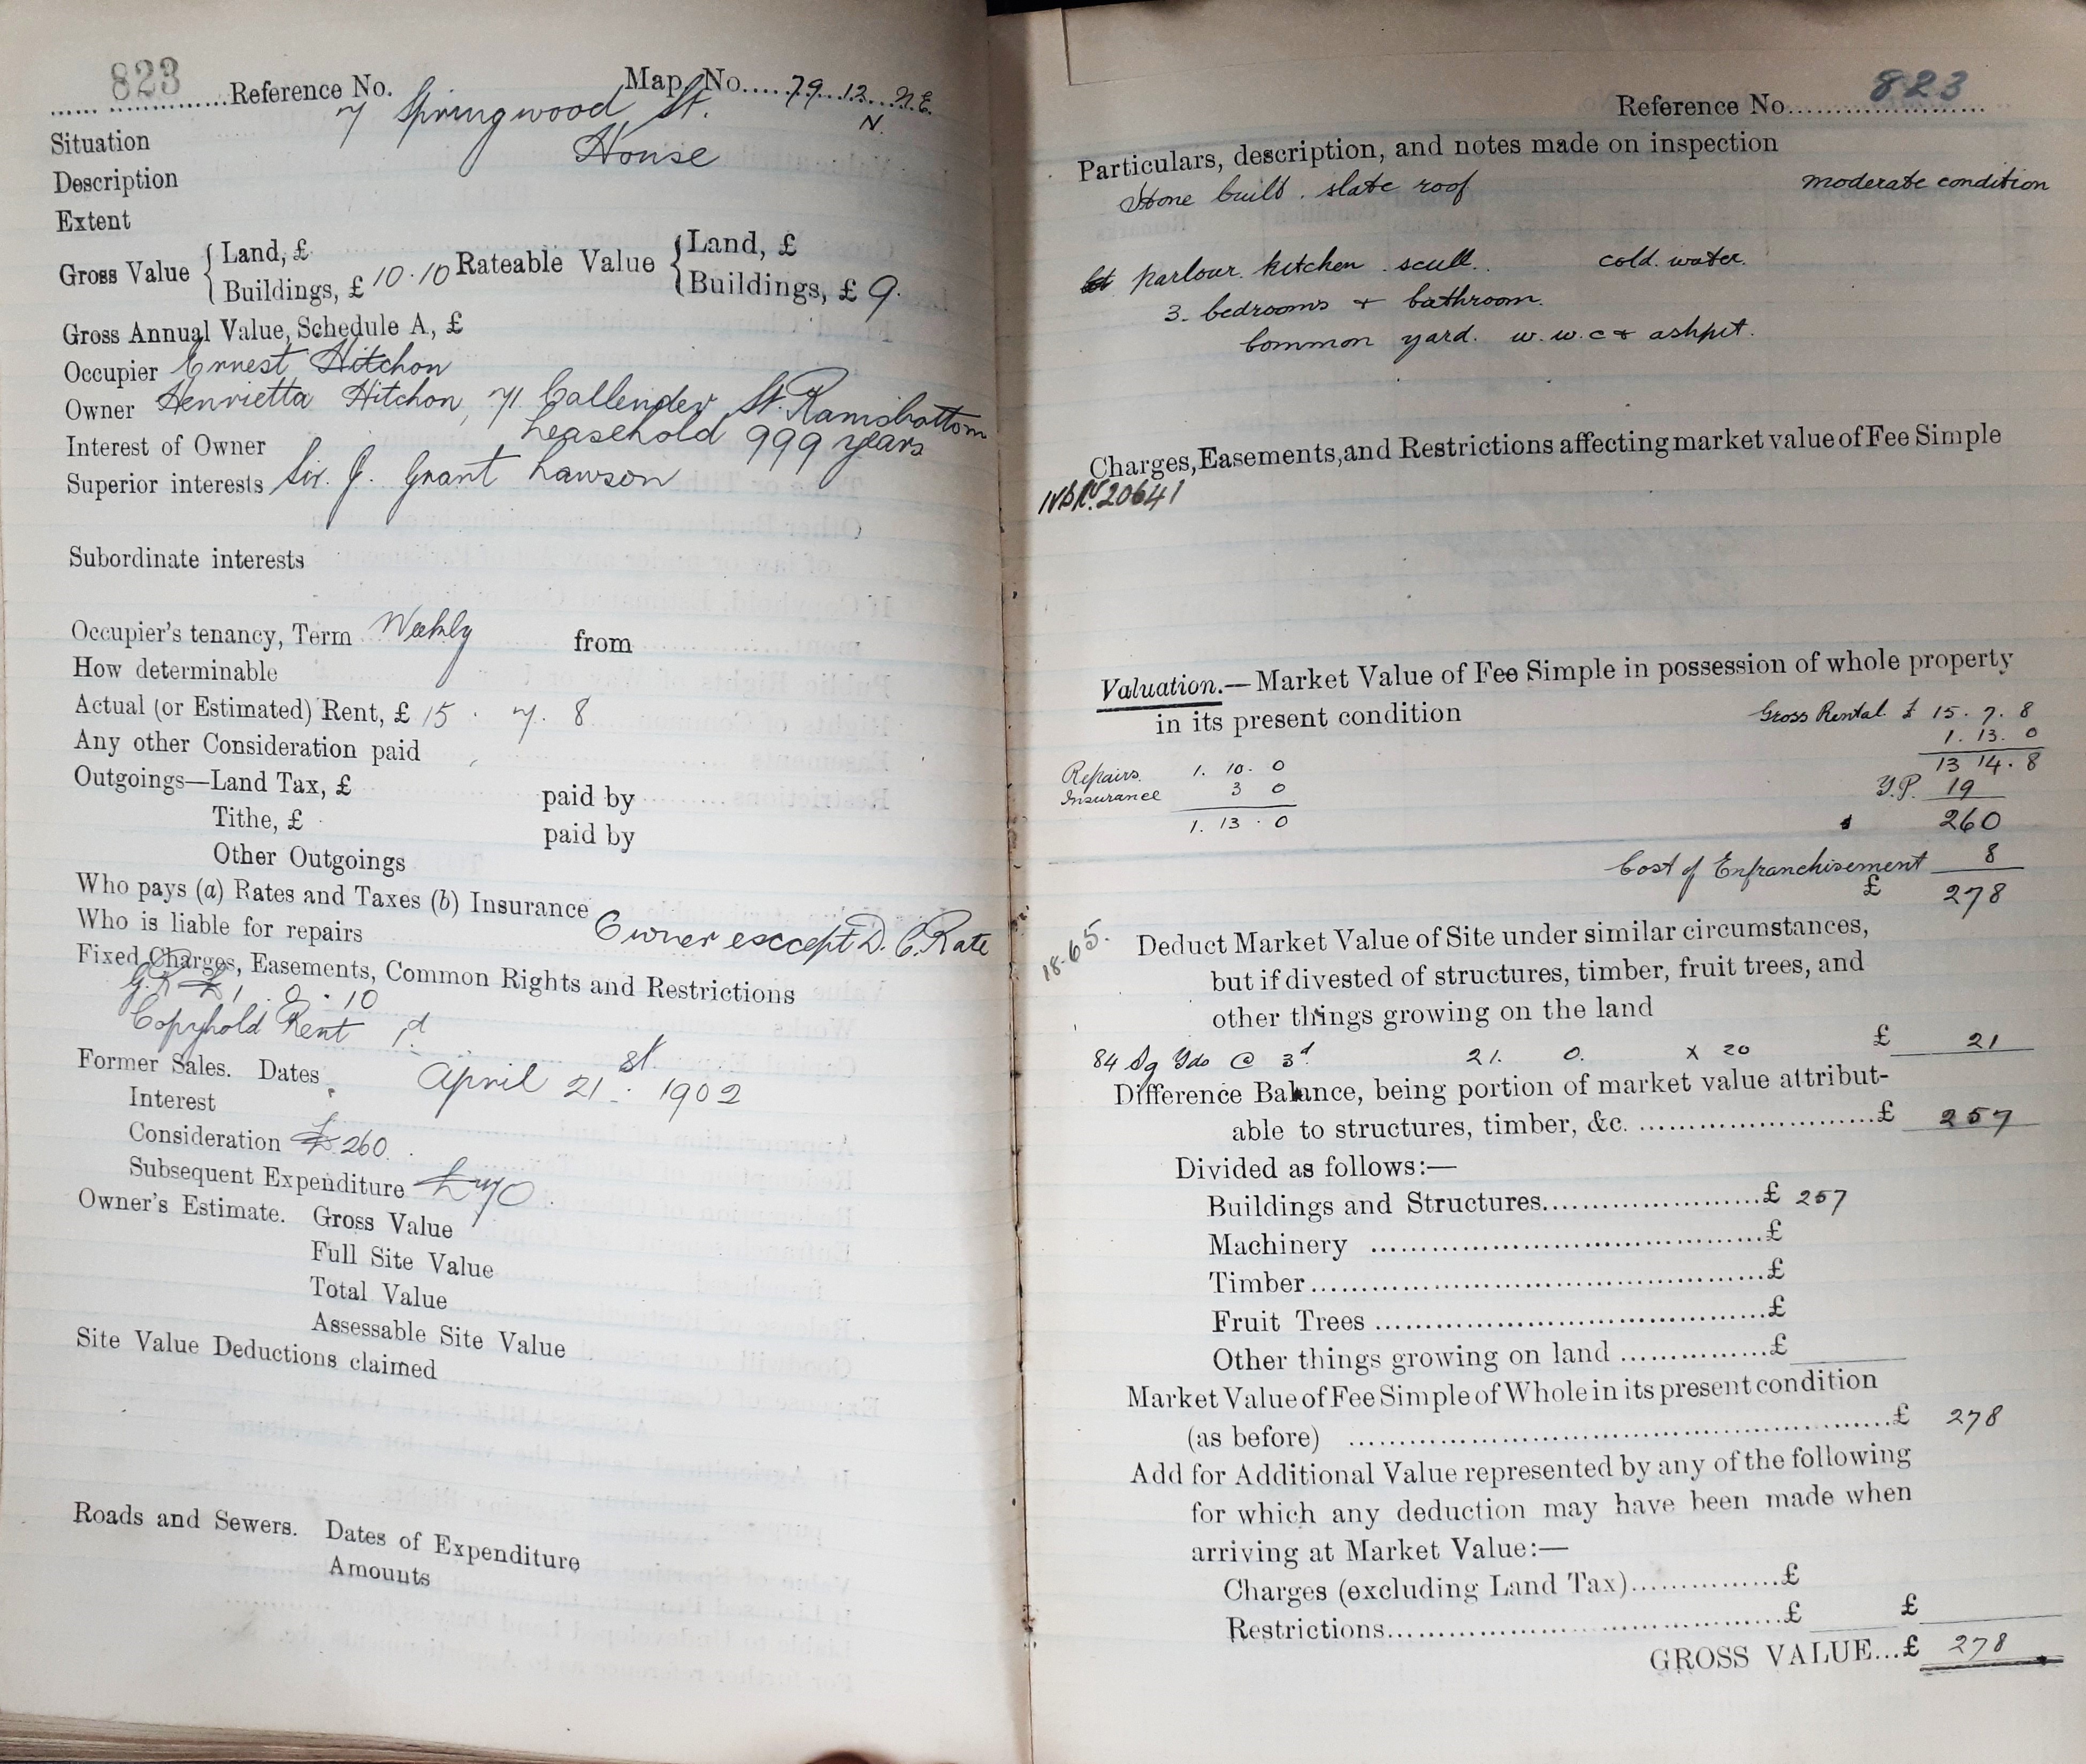 823 Reference No. Map No. 79. 12. N.E.
N.
Situation 7 Springwood St.
Description House
Extent
Gross Value { Land, £ Rateable Value { Land, £
Buildings, £ 10.10 Buildings, £ 9.
Gross Annual Value, Schedule A, £
Occupier Ernest Hitchon
Owner Henrietta Hitchon, 71 Callender St. Ramsbottom
Interest of Owner Leasehold 999 years
Superior interests Sir. J. Grant Lawson
Subordinate interests
Occupier's tenancy, Term Weekly from
How determinable
Actual (or Estimated) Rent, £ 15. 7. 8
Any other Consideration paid
Outgoings—Land Tax, £ paid by
Tithe, £ paid by
Other Outgoings
Who pays (a) Rates and Taxes (b) Insurance
Who is liable for repairs Owner except D. C. Rate
Fixed Charges, Easements, Common Rights and Restrictions
G.R £1. 0. 10
Copyhold Rent 1d
Former Sales. Dates April 21st. 1902
Interest
Consideration £260.
Subsequent Expenditure £70.
Owner's Estimate. Gross Value
Full Site Value
Total Value
Assessable Site Value
Site Value Deductions claimed
Roads and Sewers. Dates of Expenditure
Amounts
Reference No. 823
Particulars, description, and notes made on inspection
Stone built. slate roof moderate condition
parlour. kitchen. scull. cold. water.
3. bedrooms + bathroom.
Common yard. w.w.c + ashpit.
Charges, Easements, and Restrictions affecting market value of Fee Simple
20641
Valuation.—Market Value of Fee Simple in possession of whole property
in its present condition Gross Rental. £ 15. 7. 8
1. 13. 0
Repairs 1. 10. 0 13 14. 8
Insurance 3 0 Y.P. 19
1. 13. 0 260
Cost of Enfranchisement 8
£ 278
18.65.
Deduct Market Value of Site under similar circumstances,
but if divested of structures, timber, fruit trees, and
other things growing on the land
84 Sq Yds @ 3d 21. 0. x 20 £ 21
Difference Balance, being portion of market value attribut-
able to structures, timber, &c. £ 257
Divided as follows:—
Buildings and Structures £ 257
Machinery £
Timber £
Fruit Trees £
Other things growing on land £
Market Value of Fee Simple of Whole in its present condition
(as before) £ 278
Add for Additional Value represented by any of the following
for which any deduction may have been made when
arriving at Market Value:—
Charges (excluding Land Tax) £
Restrictions £ £
GROSS VALUE...£ 278